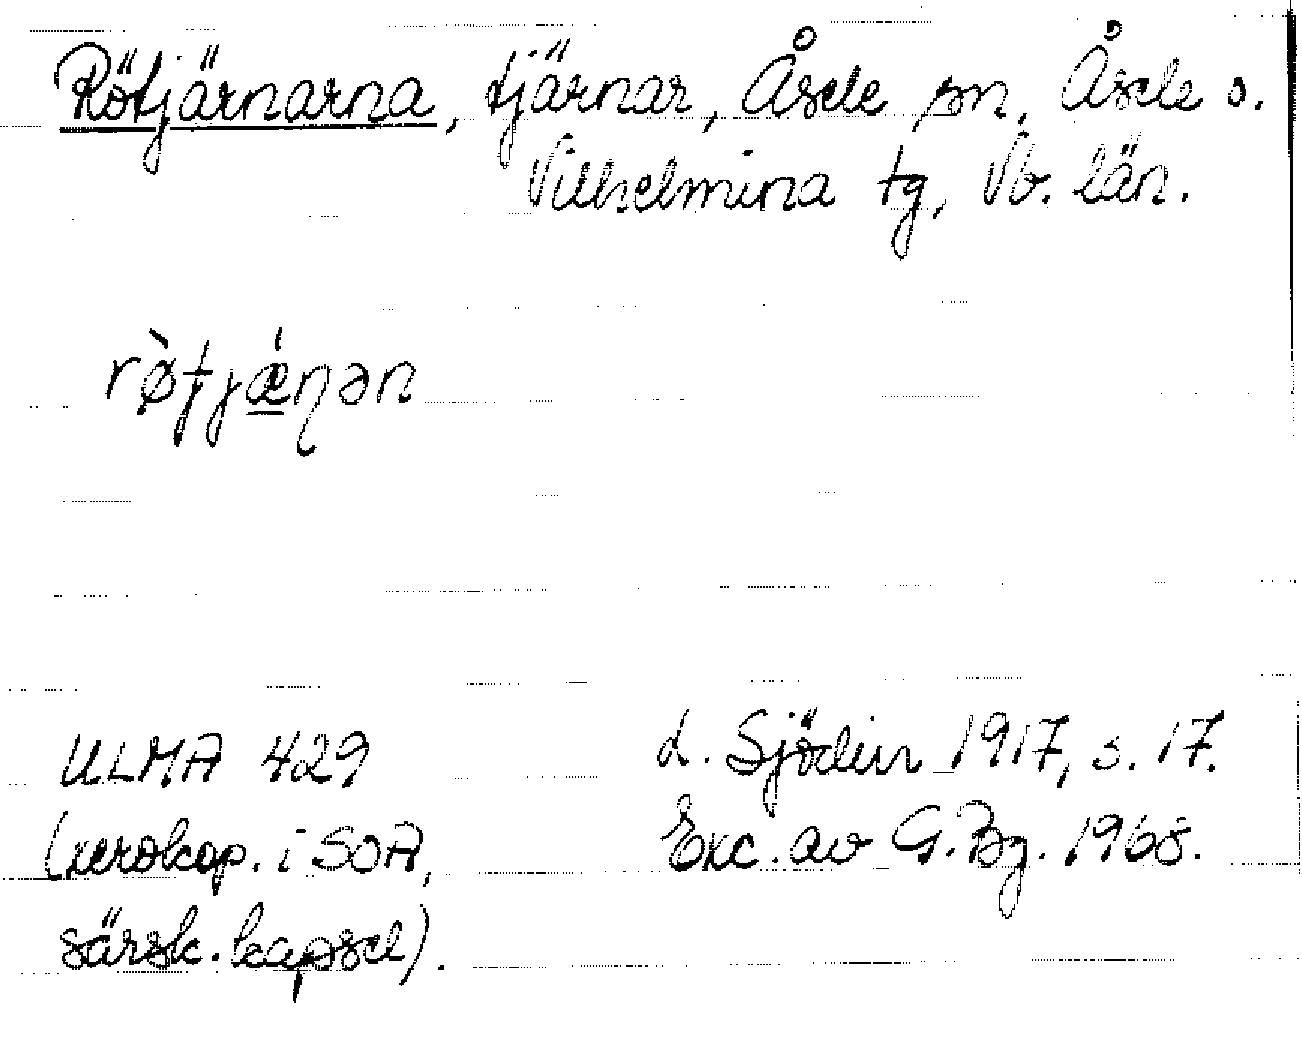 Rötjärnarna, tjärnar, Åsele sn, Åsele o.
Vilhelmina tg, Vb. län.
rø̀tjǽ̠ɳən
ULMA 429
(xerokop. i SOA,
särsk. kapsel).
L. Sjödin 1917, s. 17.
Exc. av G. Bg. 1968.